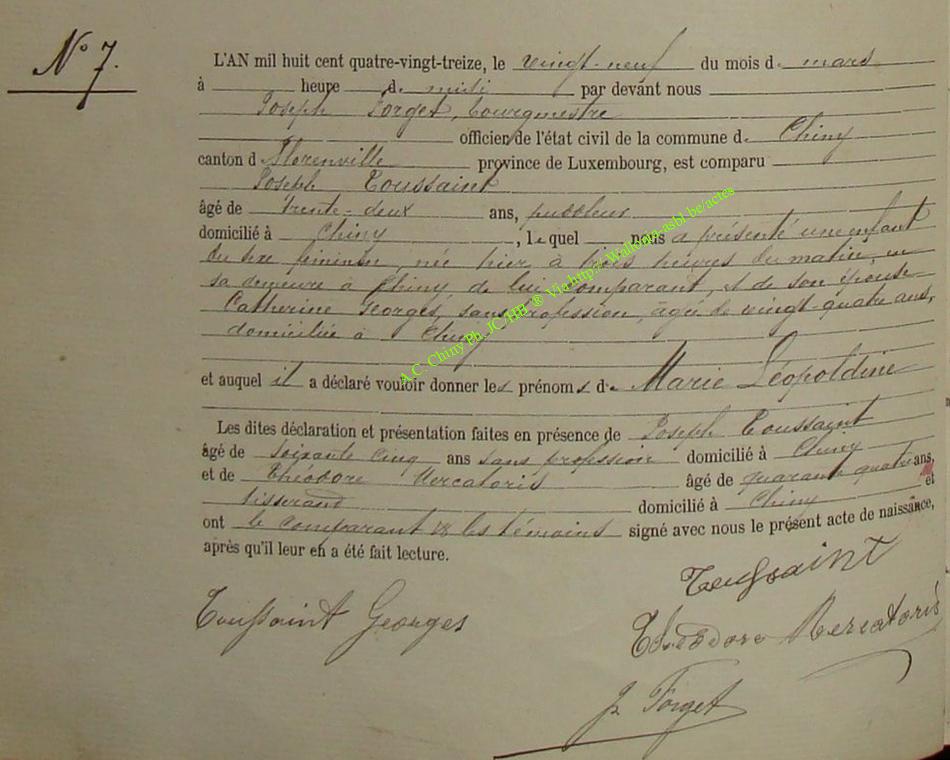 N° 7.
L'AN mil huit cent quatre-vingt-treize, le vingt-neuf du mois d. mars
à heure d. midi par devant nous
Joseph Forget, bourgmestre
officier de l'état civil de la commune d. Chiny
canton d Florenville province de Luxembourg, est comparu
Joseph Toussaint
âgé de trente-deux ans, puddleur
domicilié à Chiny, le quel nous a présenté une enfant
du sexe féminin, née hier à trois heures du matin, en
sa demeure à Chiny de lui comparant, et de son épouse
Catherine Georges, sans profession, âgée de vingt-quatre ans,
domiciliée à Chiny
et auquel il a déclaré vouloir donner les prénoms de Marie Léopoldine
Les dites déclaration et présentation faites en présence de Joseph Toussaint
âgé de soixante cinq ans sans profession domicilié à Chiny
et de Théodore Mercatoris âgé de quarante quatre ans,
tisserand domicilié à Chiny et
ont le comparant & les témoins signé avec nous le présent acte de naissance,
après qu'il leur en a été fait lecture.
Toussaint
Toussaint Georges
Théodore Mercatoris
J. Forget
A.C. Chiny Ph. JC/HB ® Via http:// Wallonia-asbl-be/actes